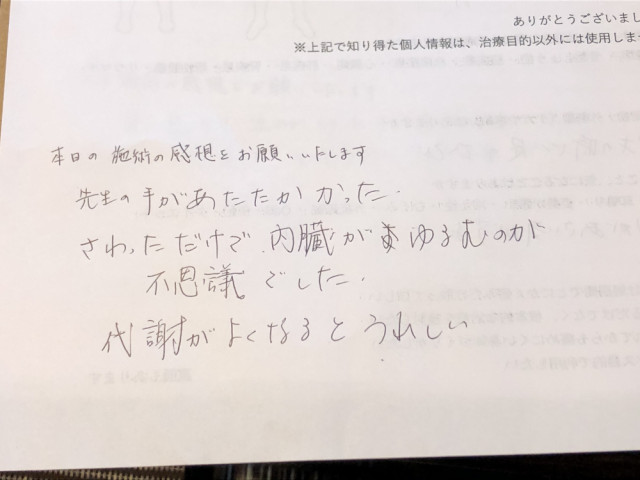 ありがとうございまし
※上記で知り得た個人情報は、治療目的以外には使用しま
本日の施術の感想をお願いいたします
先生の手があたたかかった.
さわっただけで内臓がゆるむのが
不思議でした.
代謝がよくなるとうれしい